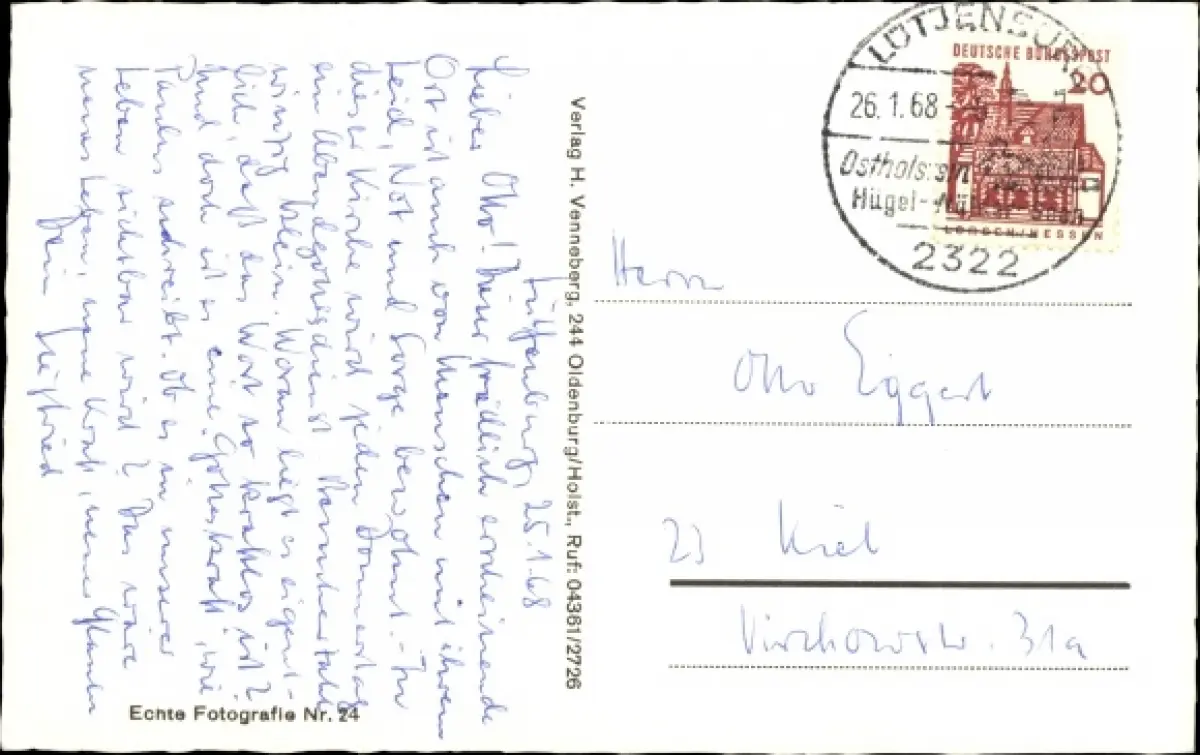 Lütjenburg, 25.1.68
Lieber Otto! Dieser friedlich erscheinende
Ort ist auch von Menschen mit ihrem
Leid, Not und Sorge bewohnt. - In
dieser Kirche wird jeden Donnerstag
ein Abendgottesdienst
winzig klein. Woran liegt es eigent-
lich, daß das Wort so kraftlos ist?
Und doch ist es eine "Gotteskraft", wie
Paulus schreibt. Ob es in unserer
Leben sichtbar wird? Das wäre
neues Leben, neue Kraft, neuer Glaube
Dein
Echte Fotografie Nr. 24
Verlag H. Venneberg, 244 Oldenburg/Holst., Ruf: 04361/2726
LÜTJENBURG
26.1.68
2322
DEUTSCHE BUNDESPOST
20
LORSCH/HESSEN
Herrn
Otto Eggert
23 Kiel
Virchowstr. 31a